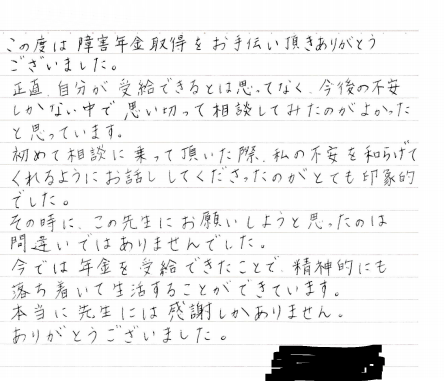 この度は障害年金取得をお手伝い頂きありがとう
ございました。
正直、自分が受給できるとは思ってなく、今後の不安
しかない中で思い切って相談してみたのがよかった
と思っています。
初めて相談に乗って頂いた際、私の不安を和らげて
くれるようにお話ししてくださったのがとても印象的
でした。
その時に、この先生にお願いしようと思ったのは
間違いではありませんでした。
今では年金を受給できたことで、精神的にも
落ち着いて生活することができています。
本当に先生には感謝しかありません。
ありがとうございました。